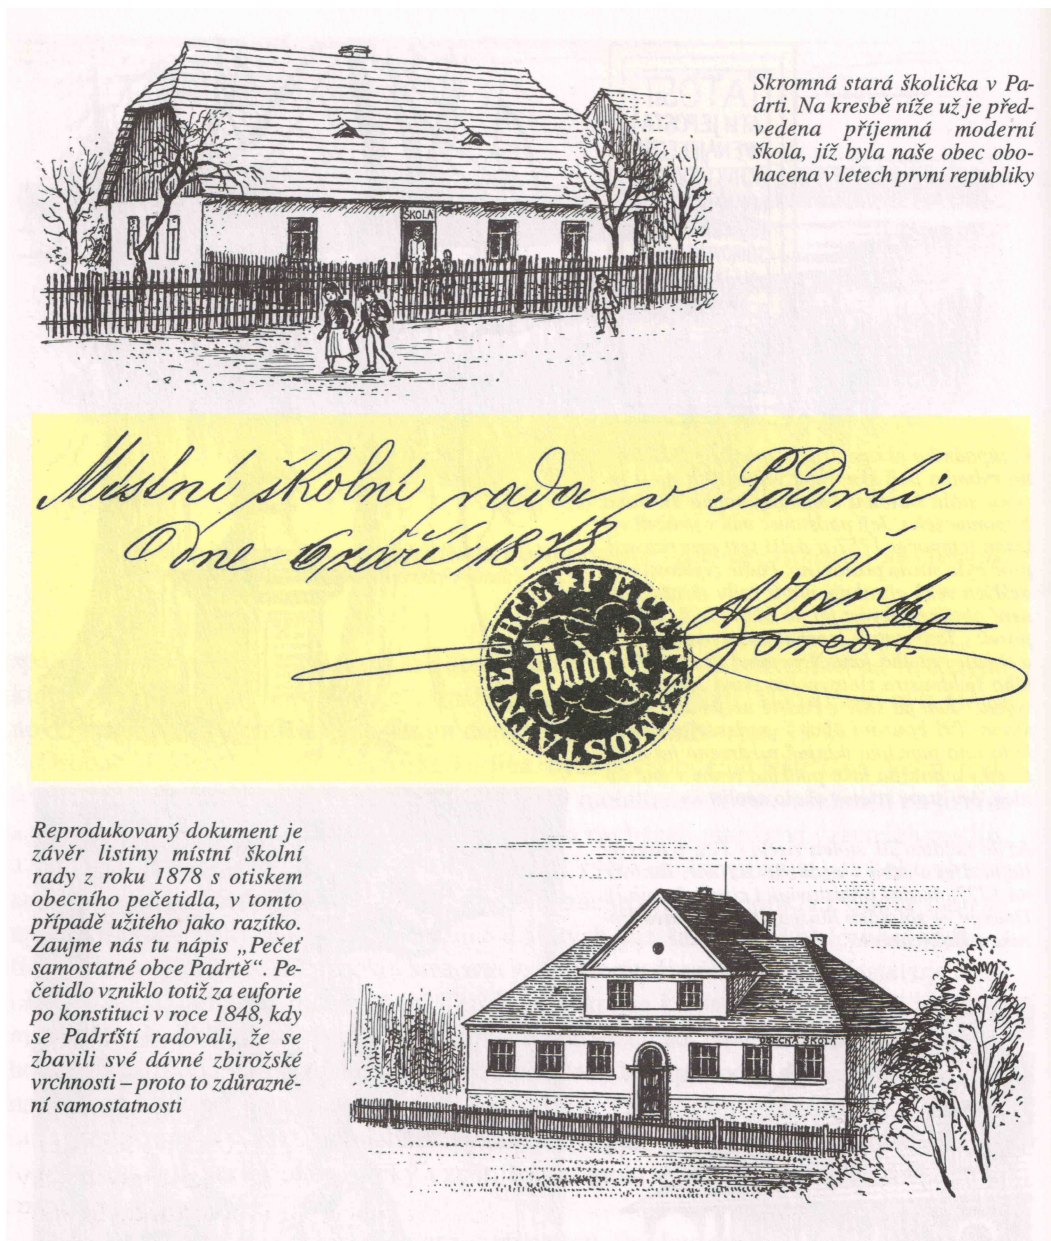 Skromná stará školička v Pa-
drti. Na kresbě níže už je před-
vedena příjemná moderní
škola, jíž byla naše obec obo-
hacena v letech první republiky
ŠKOLA
Místní školní rada v Padrti
Dne 6 září 1878
PEČEŤ SAMOSTATNÉ OBCE
Padrtě
Reprodukovaný dokument je
závěr listiny místní školní
rady z roku 1878 s otiskem
obecního pečetidla, v tomto
případě užitého jako razítko.
Zaujme nás tu nápis „Pečeť
samostatné obce Padrtě“. Pe-
četidlo vzniklo totiž za euforie
po konstituci v roce 1848, kdy
se Padrťští radovali, že se
zbavili své dávné zbirožské
vrchnosti – proto to zdůrazně-
ní samostatnosti
OBECNÁ ŠKOLA